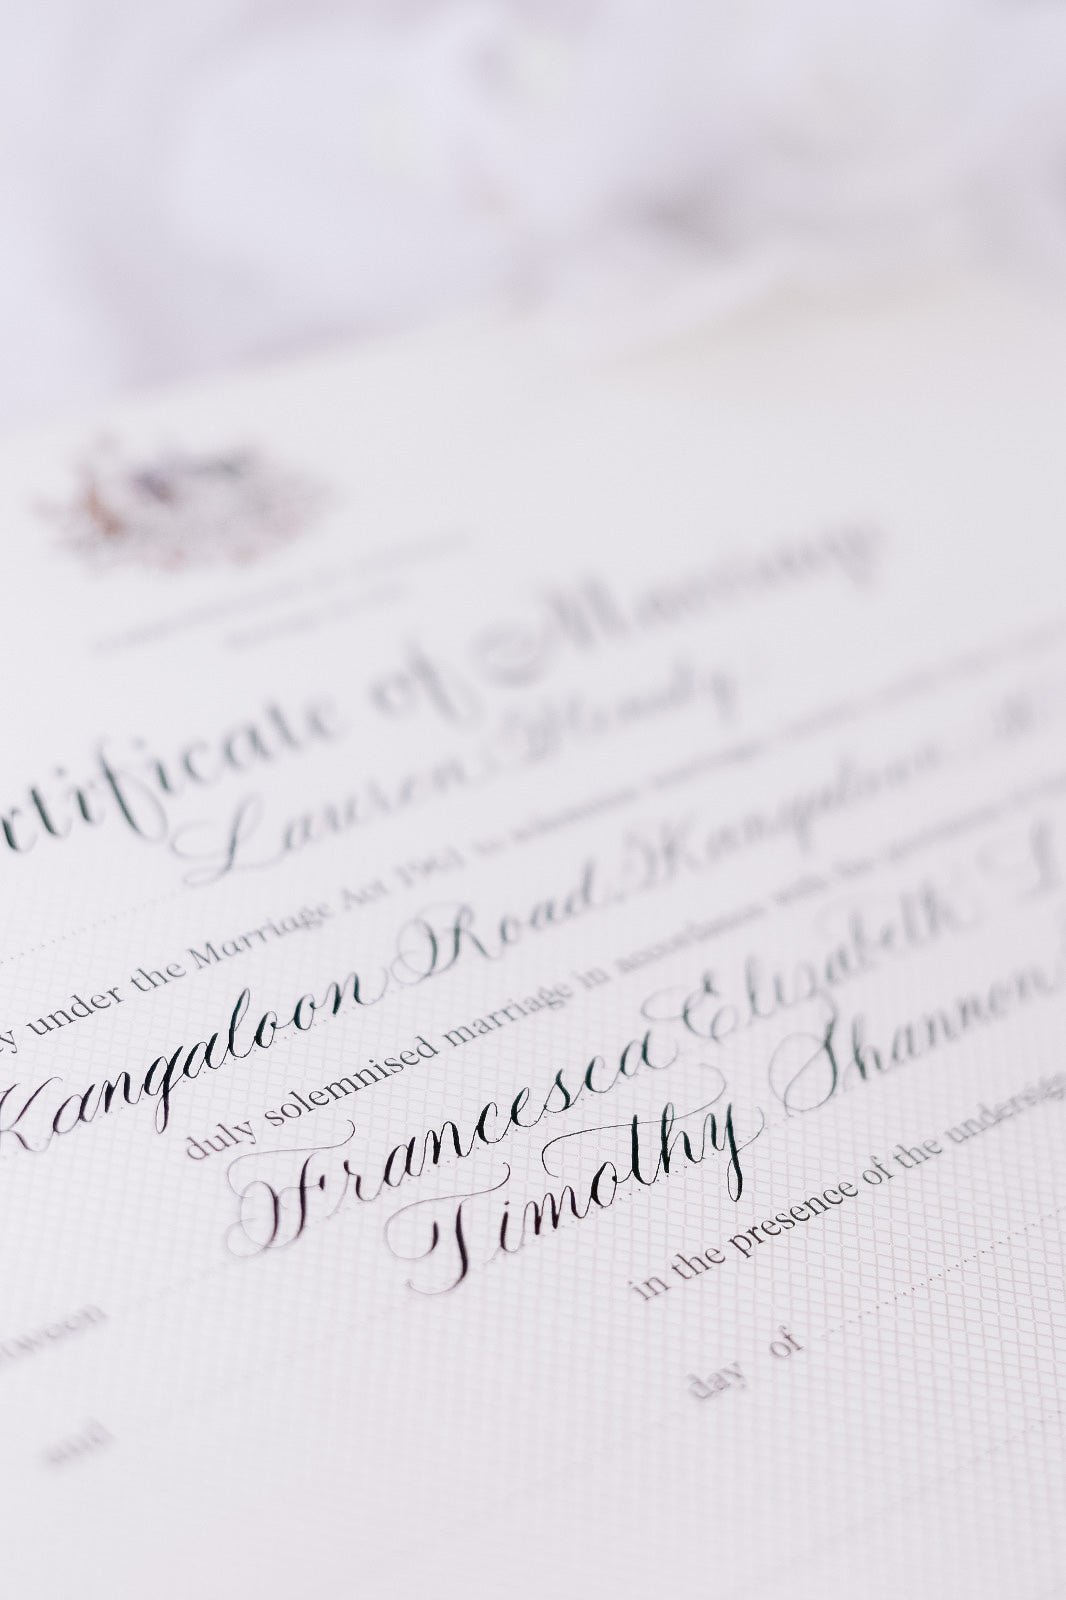 rtificate of Marriage
Lauren
y under the Marriage Act 1961 to solemnise marriage
Kangaloon Road, Kangaloon
duly solemnised marriage in accordance with the provisions
Francesca Elizabeth
Timothy Shannon
in the presence of the undersig
tween
day of
and